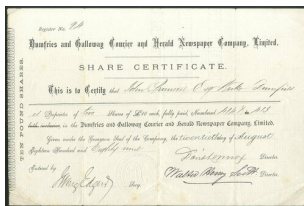 Register No. 94
Dumfries and Galloway Courier and Herald Newspaper Company, Limited.
SHARE CERTIFICATE.
This is to Certify that John
is Proprietor of Shares of £10 each, fully paid, Numbered
both inclusive in the Dumfries and Galloway Courier and Herald Newspaper Company, Limited.
Given under the Common Seal of the Company, the day of August
Eighteen Hundred and Eighty one
Director
Entered by
Director
Secy.
TEN POUND SHARES.